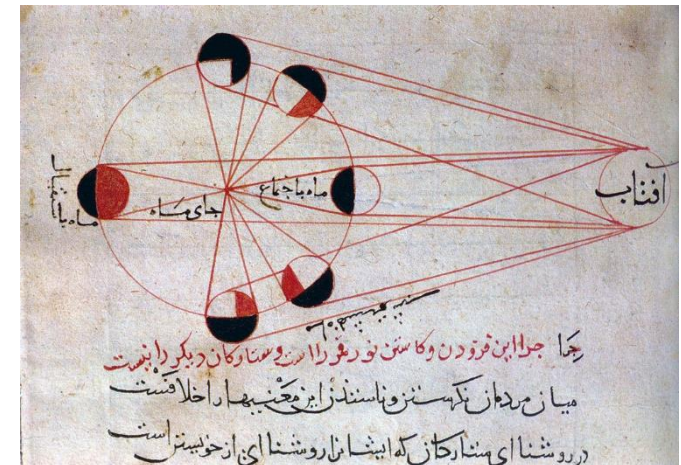 آفتاب
ماه باجتماع
جای ماه
ماه باستقبال
چرا چرا این فزودن و کاستن نور قمر را است و ستارکان دیکر را نیست
میان مردمان نکرستن و ناستدن این معنیها را خلافست
در روشنا ای ستارکان که ایشانرا روشنا ای از خویشتن است